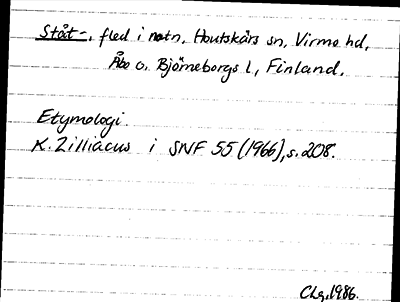 Ståt-, fled i notn, Houtskärs sn, Virmo hd,
Åbo o. Björneborgs l, Finland.
Etymologi.
K. Zilliacus i SNF 55 (1966), s. 208.
CLg, 1986.